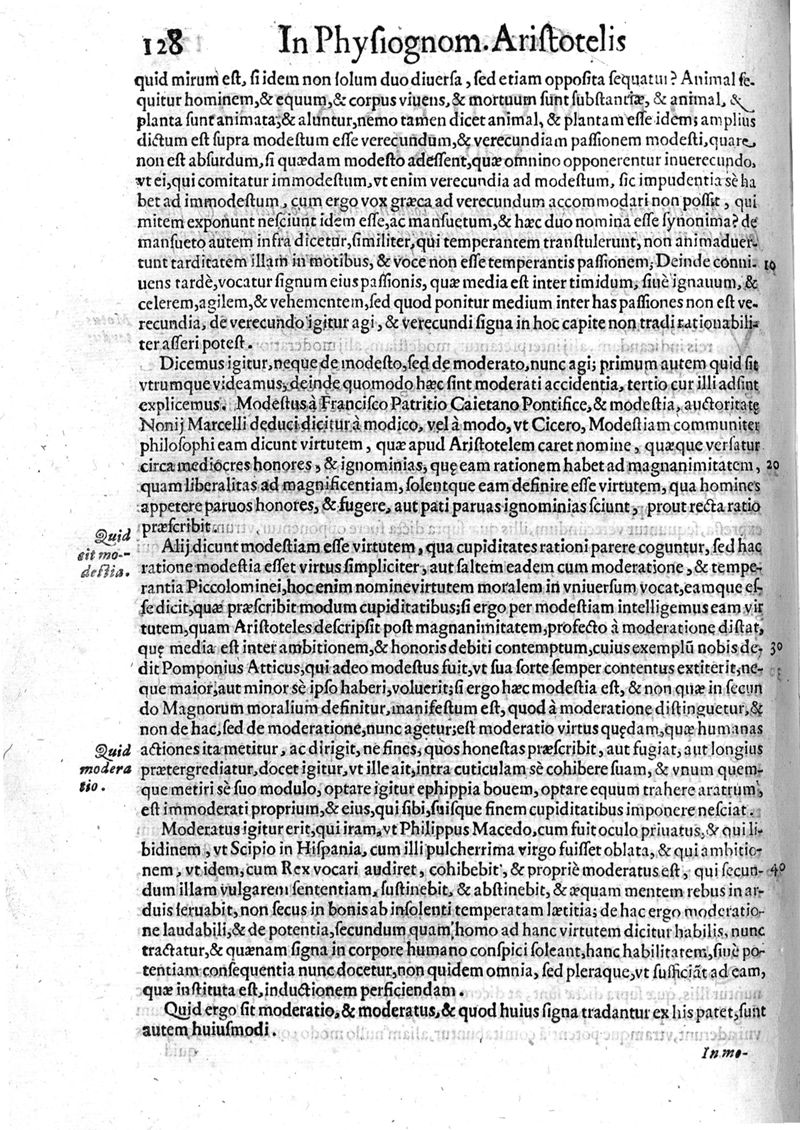 128 In Physiognom. Aristotelis
quid mirum est, si idem non solum duo diuersa, sed etiam opposita sequatur? Animal se-
quitur hominem, & equum, & corpus viuens, & mortuum sunt substantiæ, & animal, &
planta sunt animata, & aluntur, nemo tamen dicet animal, & plantam esse idem; amplius
dictum est supra modestum esse verecundum, & verecundiam passionem modesti, quare
non est absurdum, si quædam modesto adessent, quæ omnino opponerentur inuerecundo,
vt ei, qui comitatur immodestum, vt enim verecundia ad modestum, sic impudentia sè ha
bet ad immodestum, cum ergo vox græca ad verecundum accommodari non possit, qui
mitem exponunt nesciunt idem esse, ac mansuetum, & hæc duo nomina esse synonima? de
mansueto autem infra dicetur, similiter, qui temperantem transtulerunt, non animaduer-
tunt tarditatem illam in motibus, & voce non esse temperantis passionem; Deinde conni- 10
uens tardè, vocatur signum eius passionis, quæ media est inter timidum, siuè ignauum, &
celerem, agilem, & vehementem, sed quod ponitur medium inter has passiones non est ve-
recundia, de verecundo igitur agi, & verecundi signa in hoc capite non tradi rationabili-
ter asseri potest.
Dicemus igitur, neque de modesto, sed de moderato, nunc agi; primum autem quid sit
vtrumque videamus, deinde quomodo hæc sint moderati accidentia, tertio cur illi adsint
explicemus. Modestus à Francisco Patritio Caietano Pontifice, & modestia, auctoritate
Nonij Marcelli deduci dicitur à modico, vel à modo, vt Cicero, Modestiam communiter
philosophi eam dicunt virtutem, quæ apud Aristotelem caret nomine, quæque versatur
circa mediocres honores, & ignominias, quę eam rationem habet ad magnanimitatem, 20
quam liberalitas ad magnificentiam, solentque eam definire esse virtutem, qua homines
appetere paruos honores, & fugere, aut pati paruas ignominias sciunt, prout recta ratio
præscribit.
Quid
sit mo-
destia.
Alij dicunt modestiam esse virtutem, qua cupiditates rationi parere coguntur, sed hac
ratione modestia esset virtus simpliciter, aut saltem eadem cum moderatione, & tempe-
rantia Piccolominei, hoc enim nomine virtutem moralem in vniuersum vocat, eamque es-
se dicit, quæ præscribit modum cupiditatibus; si ergo per modestiam intelligemus eam vir
tutem, quam Aristoteles descripsit post magnanimitatem, profecto à moderatione distat,
quę media est inter ambitionem, & honoris debiti contemptum, cuius exemplū nobis de- 30
dit Pomponius Atticus, qui adeo modestus fuit, vt sua sorte semper contentus extiterit, ne-
que maior, aut minor sè ipso haberi, voluerit; si ergo hæc modestia est, & non quæ in secun
do Magnorum moralium definitur, manifestum est, quod à moderatione distinguetur, &
non de hac, sed de moderatione, nunc agetur; est moderatio virtus quędam, quæ humanas
Quid
modera
tio.
actiones ita metitur, ac dirigit, ne fines, quos honestas præscribit, aut fugiat, aut longius
prætergrediatur, docet igitur, vt ille ait, intra cuticulam sè cohibere suam, & vnum quem-
que metiri sè suo modulo, optare igitur ephippia bouem, optare equum trahere aratrum,
est immoderati proprium, & eius, qui sibi, suisque finem cupiditatibus imponere nesciat.
Moderatus igitur erit, qui iram, vt Philippus Macedo, cum fuit oculo priuatus, & qui li-
bidinem, vt Scipio in Hispania, cum illi pulcherrima virgo fuisset oblata, & qui ambitio-
nem, vt idem, cum Rex vocari audiret, cohibebit, & propriè moderatus est, qui secun- 40
dum illam vulgarem sententiam, sustinebit, & abstinebit, & æquam mentem rebus in ar-
duis seruabit, non secus in bonis ab insolenti temperatam lætitia; de hac ergo moderatio-
ne laudabili, & de potentia, secundum quam, homo ad hanc virtutem dicitur habilis, nunc
tractatur, & quænam signa in corpore humano conspici soleant, hanc habilitatem, siuè po-
tentiam consequentia nunc docetur, non quidem omnia, sed pleraque, vt sufficiāt ad eam,
quæ instituta est, inductionem perficiendam.
Quid ergo sit moderatio, & moderatus, & quod huius signa tradantur ex his patet, sunt
autem huiusmodi.
In mo-